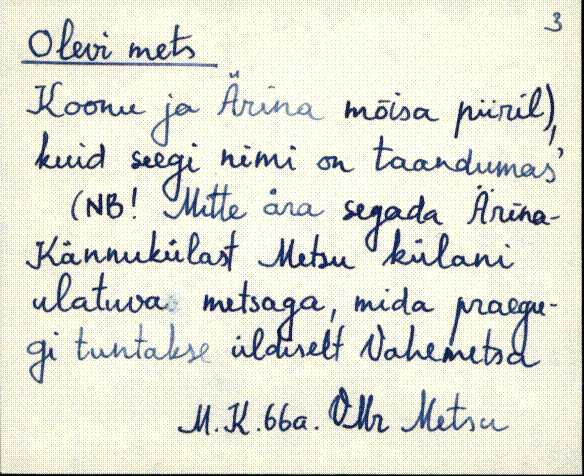 3
Olevi mets
Koonu ja Ärina mõisa piiril),
kuid seegi nimi on taandumas
(NB! Mitte ära segada Ärina-
Kännukülast Metsu külani
ulatuva metsaga, mida praegu-
gi tuntakse üldiselt Vahemetsa
M.K. 66a. VMr Metsu